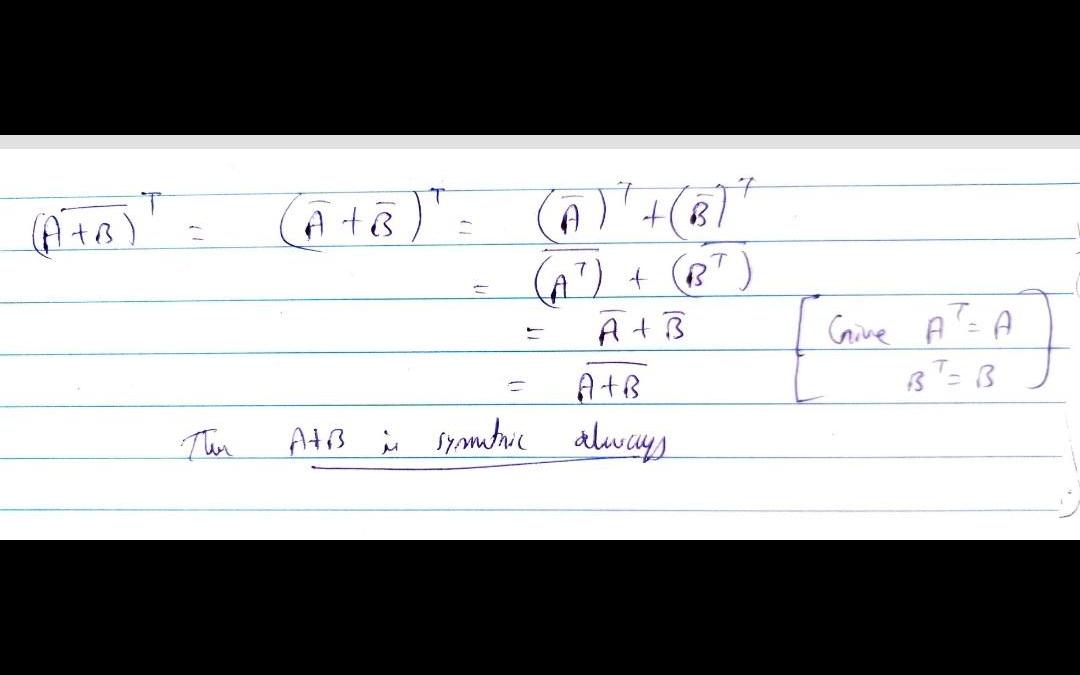 (A+B̅)ᵀ = (A̅ + B̅)ᵀ = (A̅)ᵀ + (B̅)ᵀ
= (A̅ᵀ̅) + (B̅ᵀ̅)
= A̅ + B̅ [Give Aᵀ = A
= A̅+̅B̅ Bᵀ = B]
A+B is symmtric always